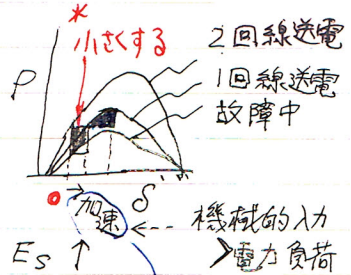 *
小さくする
2回線送電
1回線送電
故障中
P
0
δ
加速
機械的入力
>電力負荷
Es ↑